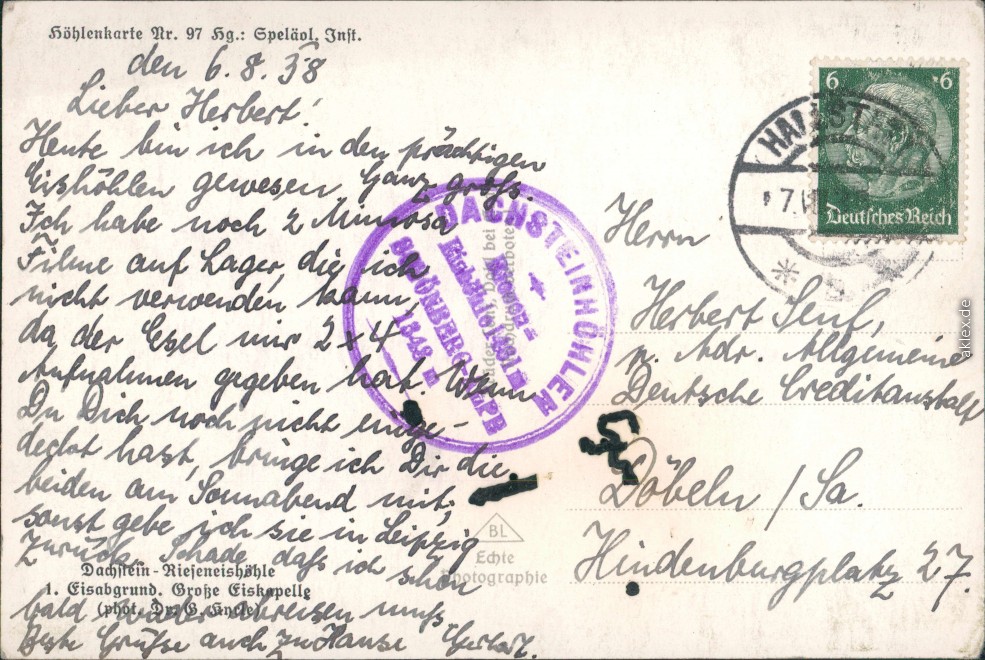 Höhlenkarte Nr. 97 Hg.: Speläol. Inst.
den 6.8.38
Lieber Herbert!
Heute bin ich in den prächtigen
Eishöhlen gewesen. Ganz groß.
Ich habe noch 2 Mimosa
Filme auf Lager, die ich
nicht verwenden kann,
da der Esel mir 2 x 4
Aufnahmen gegeben hat. Wenn
Du Dich noch nicht einge-
deckt hast, bringe ich Dir die
beiden am Sonnabend mit,
sonst gebe ich sie in Leipzig
zurück. Schade, daß ich schon
bald wieder abreisen muß.
Beste Grüße auch zu Hause
Dachstein-Rieseneishöhle
1. Eisabgrund. Große Eiskapelle
(phot. Dr.
DACHSTEINHÖHLEN
SCHÖNBERGALPE
1348 m
BL
Echte
Photographie
HALLSTATT
6 6
Deutsches Reich
Herrn
Herbert Senf,
p. Adr. Allgemeine
Deutsche Creditanstalt
Döbeln / Sa.
Hindenburgplatz 27.
aklex.de